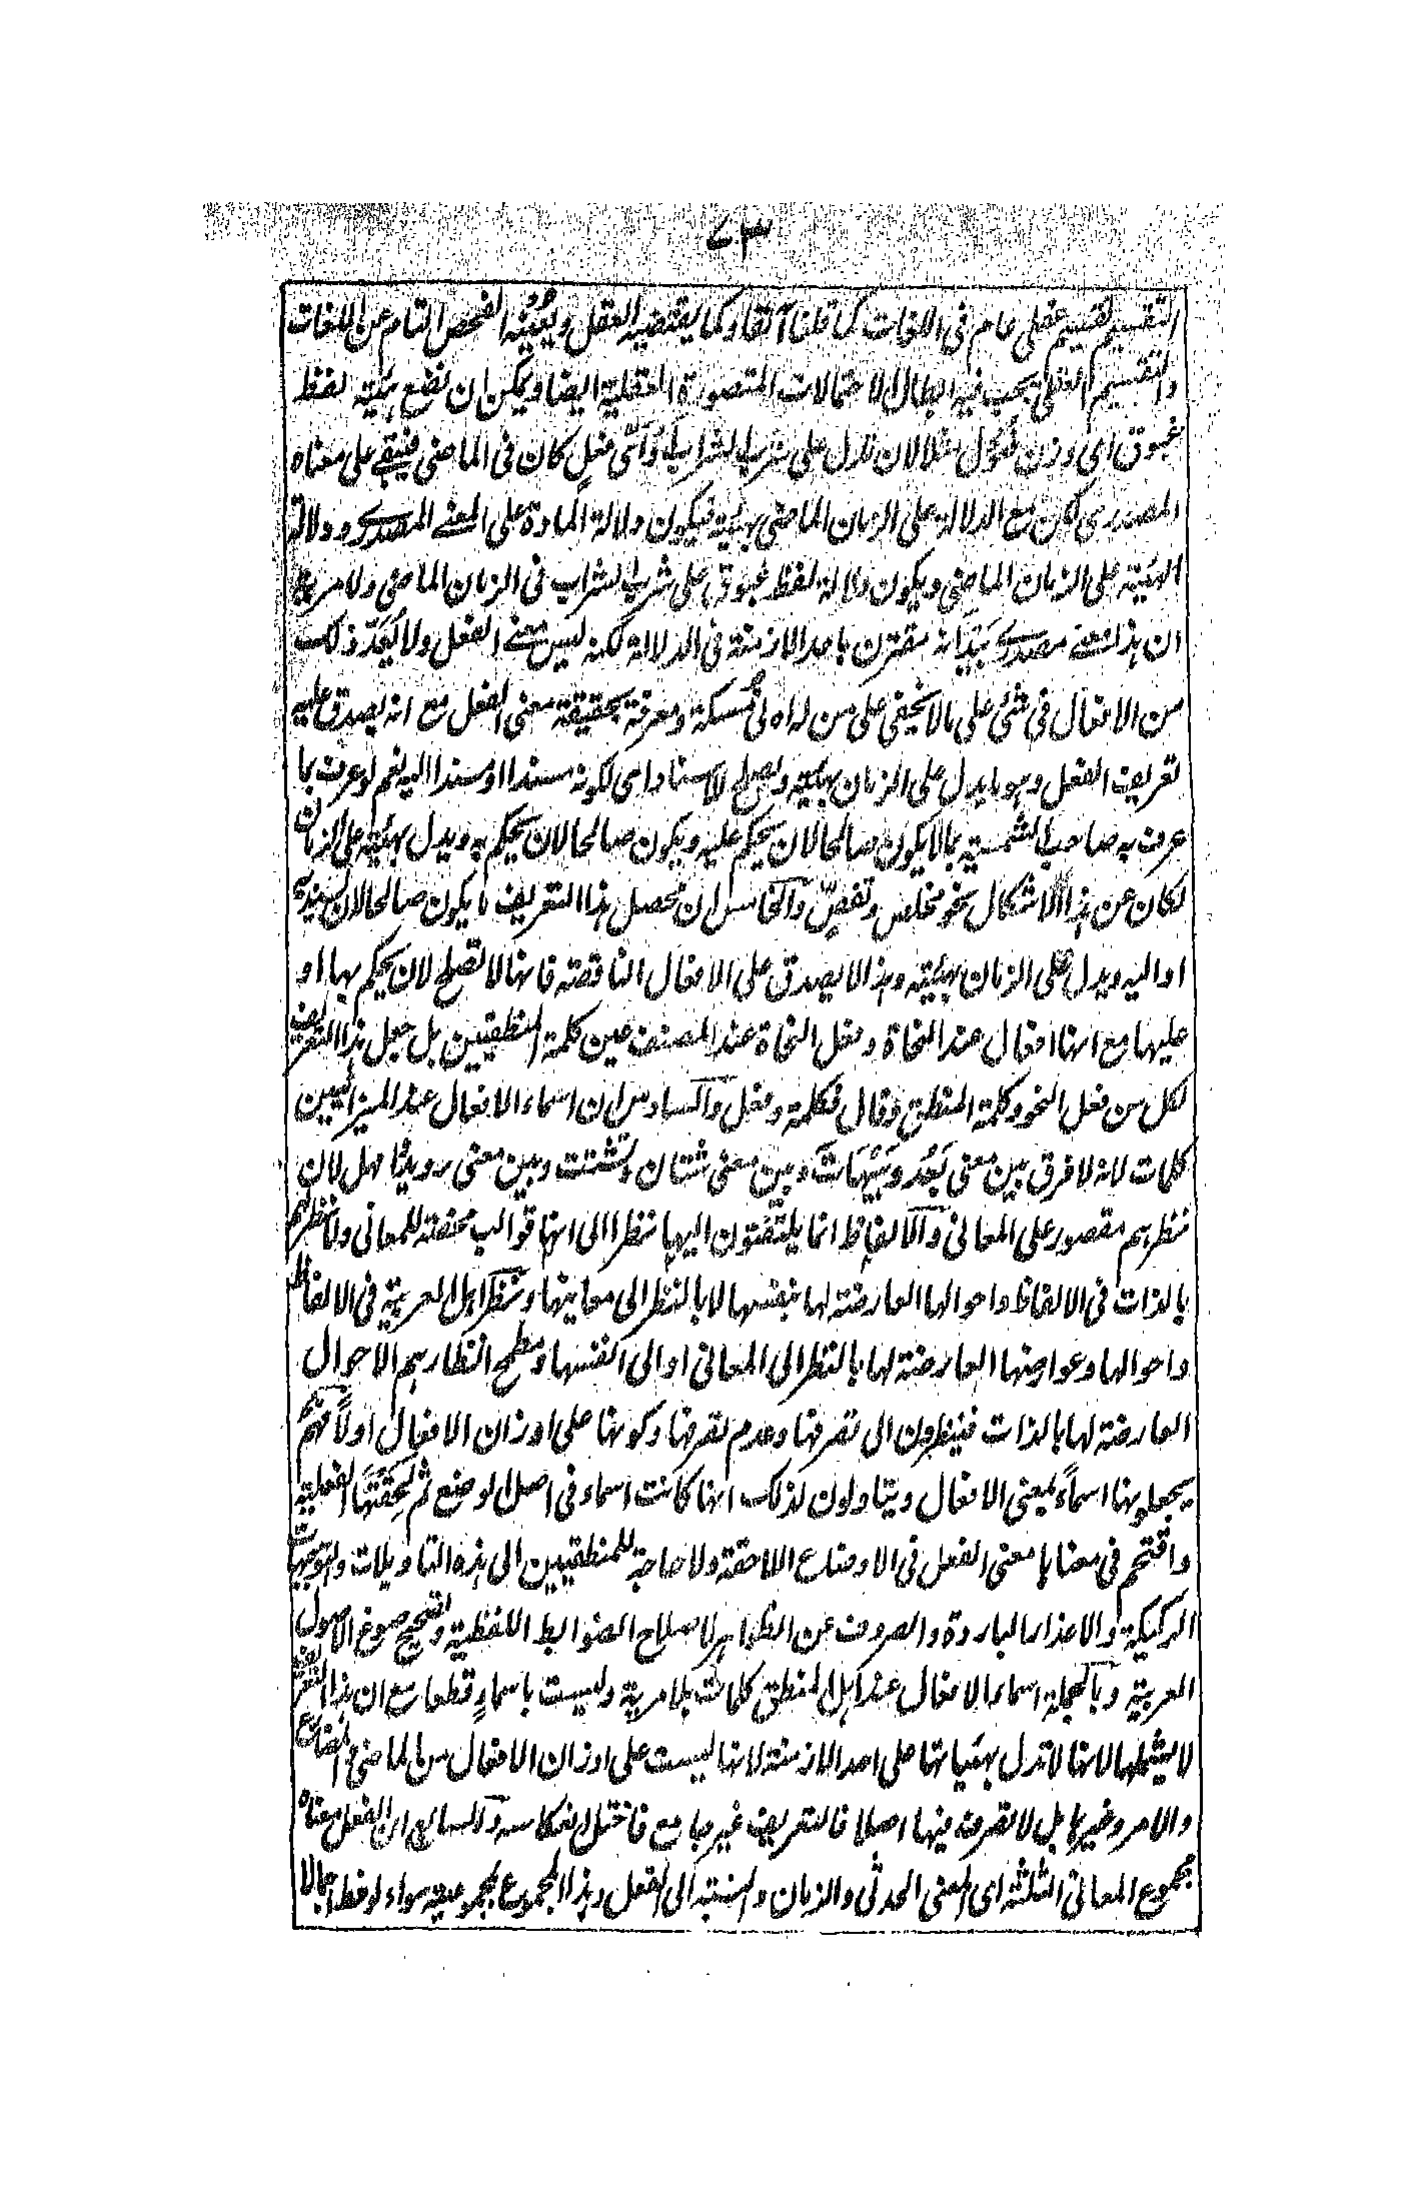 ٧٣
التقسيم تقسيم عقلى عام فى اللغات كما قلنا آنفا وكما يقتضيه العقل ويُعيّنه الفحص التام عن اللغات
والتقسيم العقلى يجب فيه ابطال الاحتمالات المتصورة العقلية ايضا ويمكن ان نضع هيئية لفظ
غبوق اى وزن فعول مثلا لان تدل على شرب الشراب واىّ فعل كان فى الماضى فيبقے على معناه
المصدرى لكن مع الدلالة على الزمان الماضى بهيئية فيكون دلالة المادة على المعنے المصدرے ودلالة
الهيئية على الزمان الماضى ويكون دلالة لفظ غبوق على شرب الشراب فى الزمان الماضى ولا مرية
ان هذا معنے مصدرے بَيْدَ انه مقترن باحد الازمنة فى الدلالة لكنه ليس معنے الفعل ولا يُعَدّ ذلك
من الافعال فى شئ على ما لا يخفى على من له ادنى مُسكة ومعرفة بحقيقة معنى الفعل مع انه يصدق عليه
تعريف الفعل وهو ما يدل على الزمان بهيئيه ويصلح للاسناد اى لكونه مسندا او مسندا اليه نعم لو عرف بما
عرف به صاحب الشمسية بما لا يكون صالحا لان يحكم عليه ويكون صالحا لان يحكم به ويدل بهيئية على الزمان
لكان عن هذا الاشكال نحو مخلص وتفصٍّ والخامس ان محصل هذا التعريف ما يكون صالحا لان يسند به
او اليه ويدل على الزمان بهيئيته وهذا لا يصدق على الافعال الناقصة فانها لا تصلح لان يحكم بها او
عليها مع انها افعال عند النحاة وفعل النحاة عند المصنف عين كلمة المنطقيين بل جعل هذا التعريف
لكل من فعل النحو وكلمة المنطق وقال فكلمة وفعل والسادس ان اسماء الافعال عند الميزانيين
كلمات لانه لا فرق بين معنى بَعُد وهَيْهَاتَ وبين معنى شتان وتشتت وبين معنى رويد وامهل لان
نظرهم مقصور على المعانى والالفاظ انما يلتفتون اليها نظرا الى انها قوالب محضة للمعانى ولا نظر لهم
بالذات فى الالفاظ واحوالها العارضة لها بنفسها لا بالنظر الى معاينها ونظر اهل العربية فى الالفاظ
واحوالها وعوارضها العارضة لها بالنظر الى المعانى او الى انفسها ومطمح انظارهم الاحوال
العارضة لها بالذات فينظرون الى تصرفها وعدم تصرفها وكونها على اوزان الافعال اولاً فهم
يجعلونها اسماءً لمعنى الافعال ويتاولون لذلك انها كانت اسماء فى اصل الوضع ثم لَحِقَتْهَا الفعلية
واقتحم فى معناها معنى الفعل فى الاوضاع اللاحقة ولا حاجة للمنطقيين الى هذه التاويلات والتوجيهات
الركيكة والاعذار الباردة والصروف عن الظواهر لاصلاح الضوابط اللفظية وتصحيح صوغ الاصول
العربية وبالجملة اسماء الافعال عند اهل المنطق كلمات بلا مرية وليست باسماءٍ قطعا مع ان هذا التعريف
لا يشملها لانها لا تدل بهيَاتها على احد الازمنة لانها ليست على اوزان الافعال من الماضى والمضارع
والامر وغيرها بل لا تصرف فيها اصلا فالتعريف غير جامع فاختل انعكاسه والسابع ان الفعل معناه
مجموع المعانى الثلثة اى المعنى الحدثى والزمان والنسبة الى الفعل وهذا المجموع بمجموعيته سواء لوحظ اجمالا